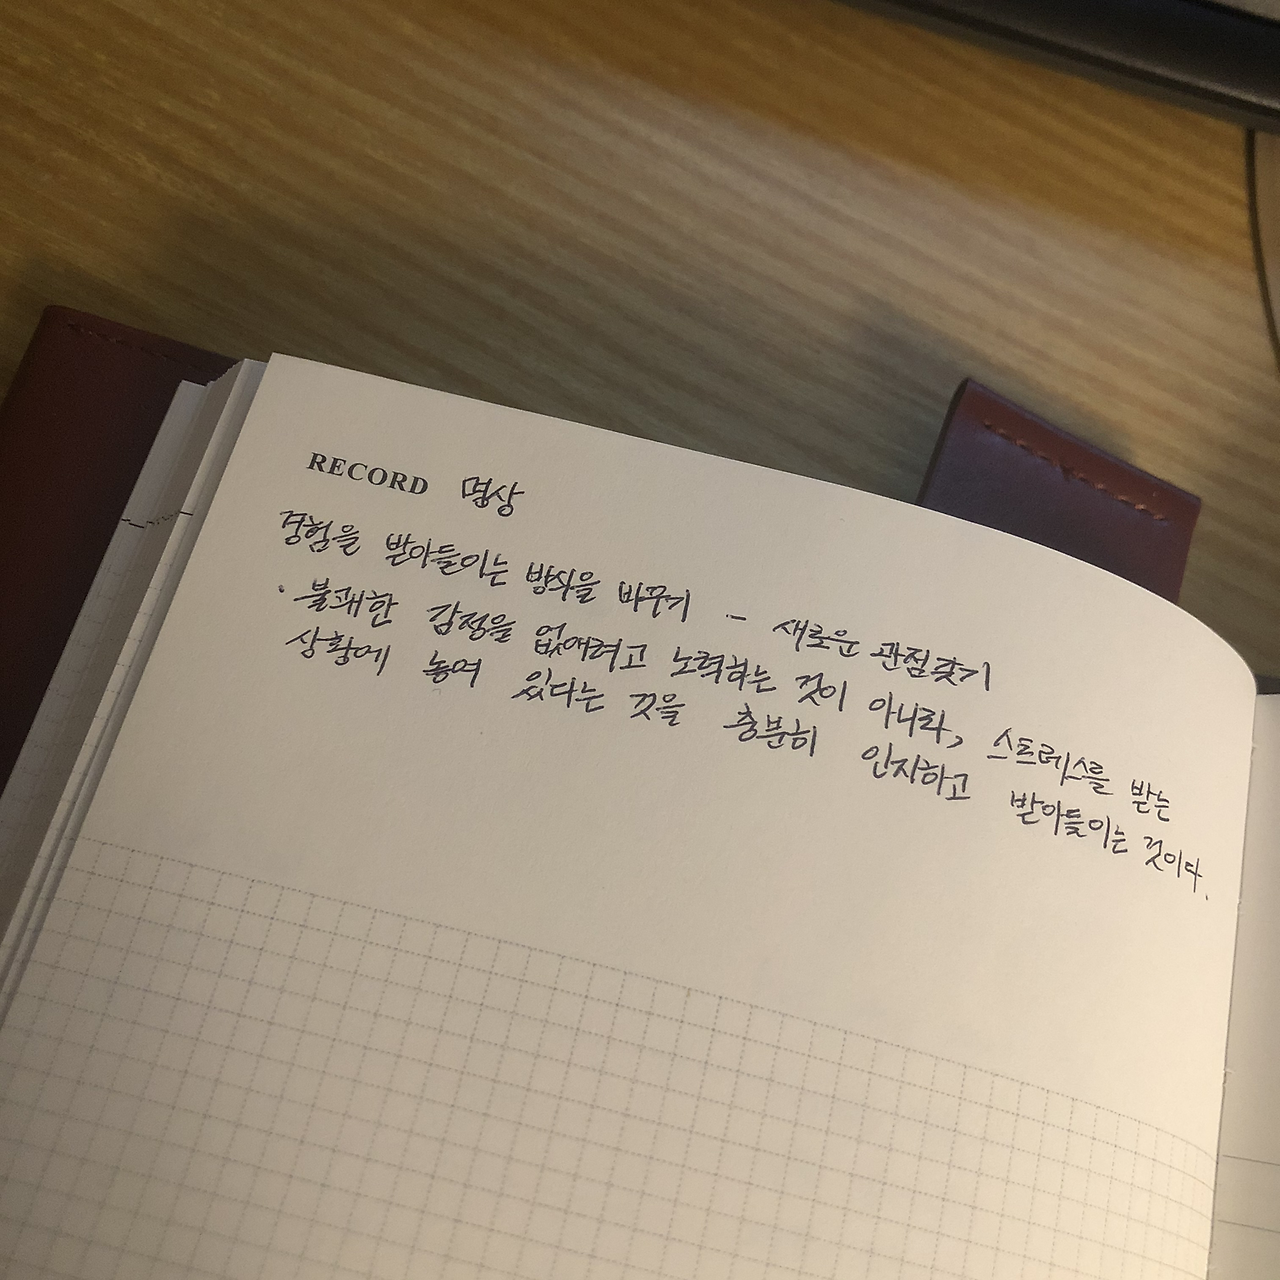 RECORD 명상
경험을 받아들이는 방식을 바꾸기 - 새로운 관점찾기
· 불쾌한 감정을 없애려고 노력하는 것이 아니라, 스트레스를 받는
상황에 놓여 있다는 것을 충분히 인지하고 받아들이는 것이다.